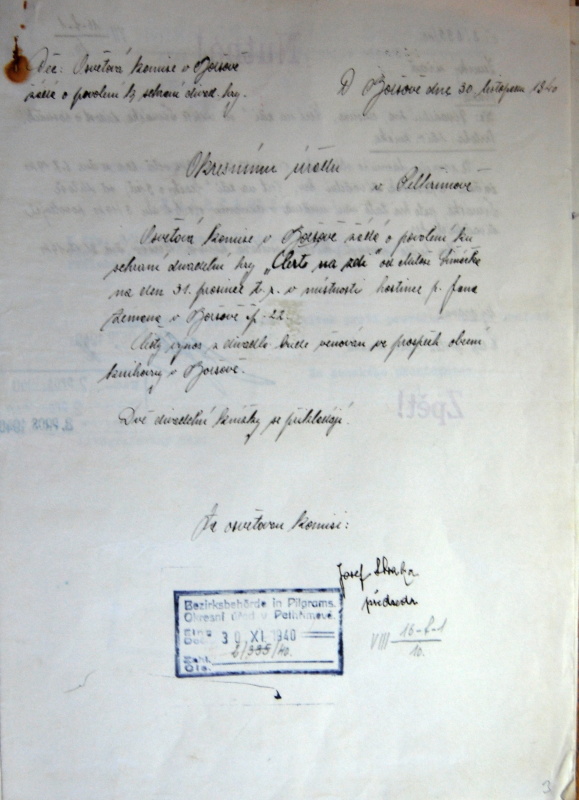 Věc: Osvětová komise v Boršově
žádá o povolení k sehrání divad. hry.
V Boršově dne 30. listopadu 1940
Okresnímu úřadu
v Pelhřimově
Osvětová komise v Boršově žádá o povolení ku
sehrání divadelní hry „Čerte na zdi" od Aloise
na den 31. prosince t. r. v místnosti hostince p. Jana
Zemana v Boršově čp. 22.
Čistý výnos z divadla bude věnován ve prospěch obecní
knihovny v Boršově.
Dvě divadelní knížky se přikládají.
Za osvětovou komisi:
Josef Straka
předseda
Bezirksbehörde in Pilgrams.
Okresní úřad v Pelhřimově.
Eing.
Došlo 30 XI. 1940
2/335/40.
Zahl.
Čís.
VIII 16-f-1
10.
Zpět!
3